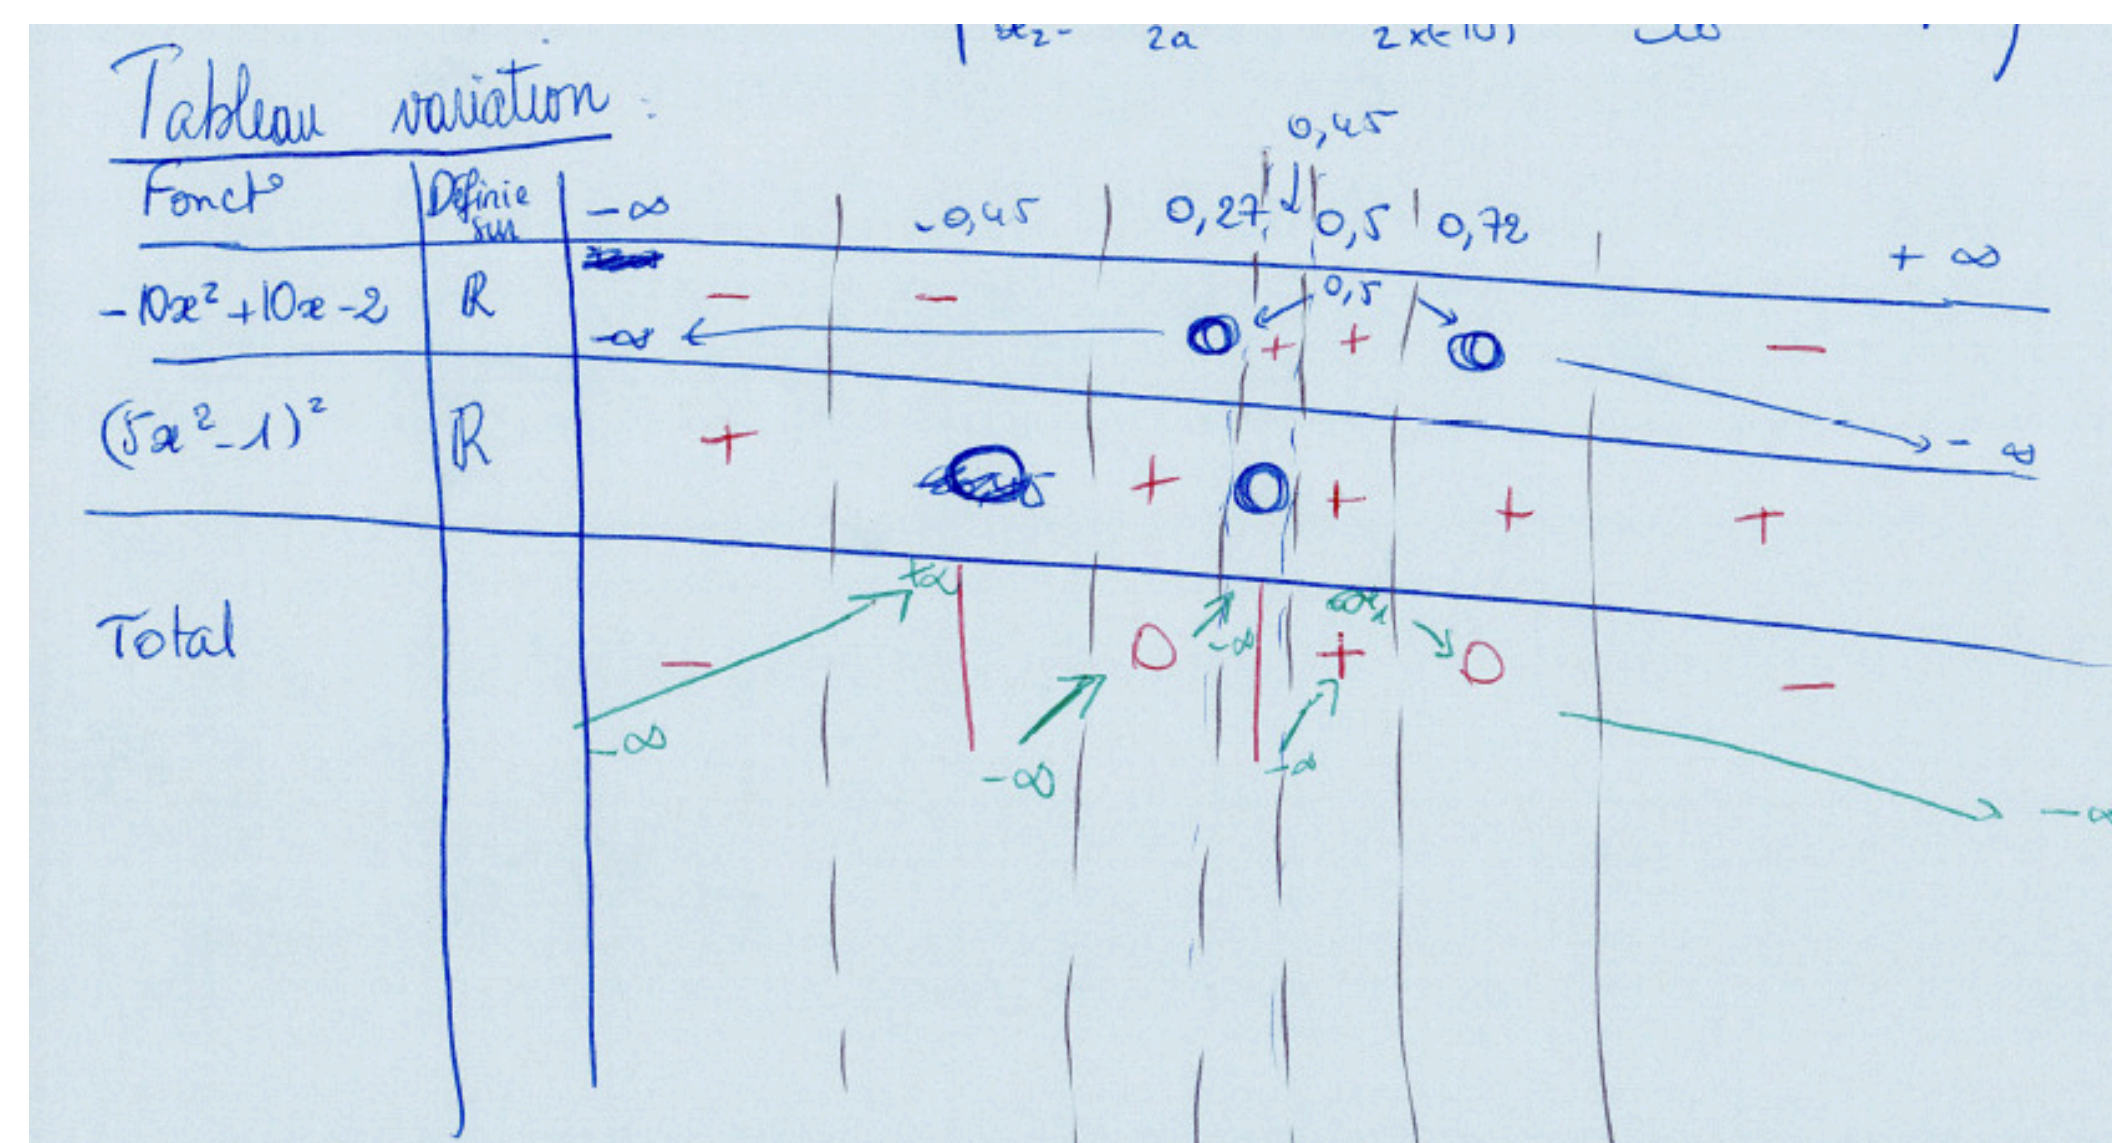 2a 2x(-10)
Tableau variation :
0,45
Fonct° Définie sur -∞ -0,45 0,27 0,5 0,72 +∞
-10x²+10x-2 ℝ - - 0,5 -
-∞ 0 + + 0 -∞
(5x²-1)² ℝ + 0 + 0 + + +
+∞
Total - 0 -∞ + 0 -
-∞ -∞ -∞ -∞